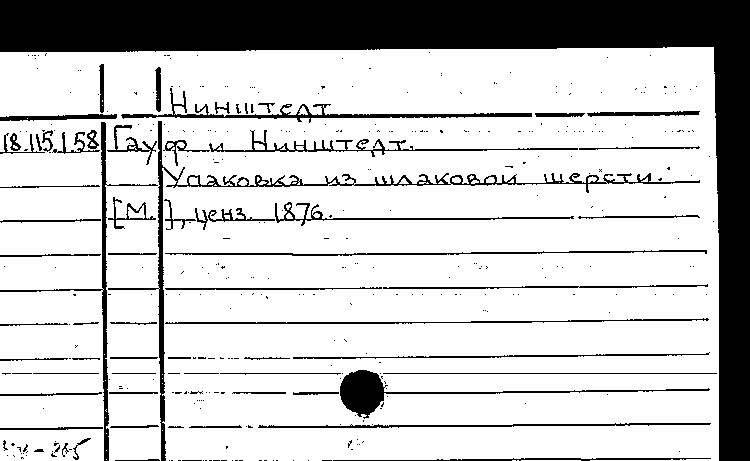 Нинштедт
18.115.1.58 Гауф и Нинштедт.
Упаковка из шлаковой шерсти.
[М.], ценз. 1876.